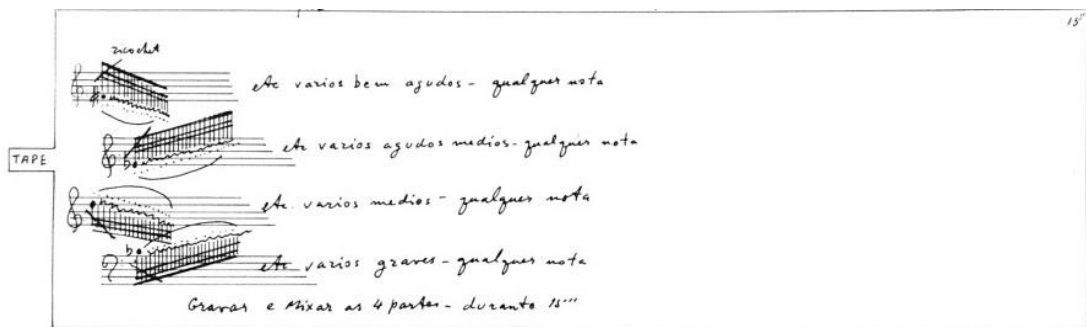 15"
ricochet
etc varios bem agudos - qualquer nota
etc varios agudos medios - qualquer nota
TAPE
etc. varios medios - qualquer nota
etc varios graves - qualquer nota
Gravar e Mixar as 4 partes - durante 15"